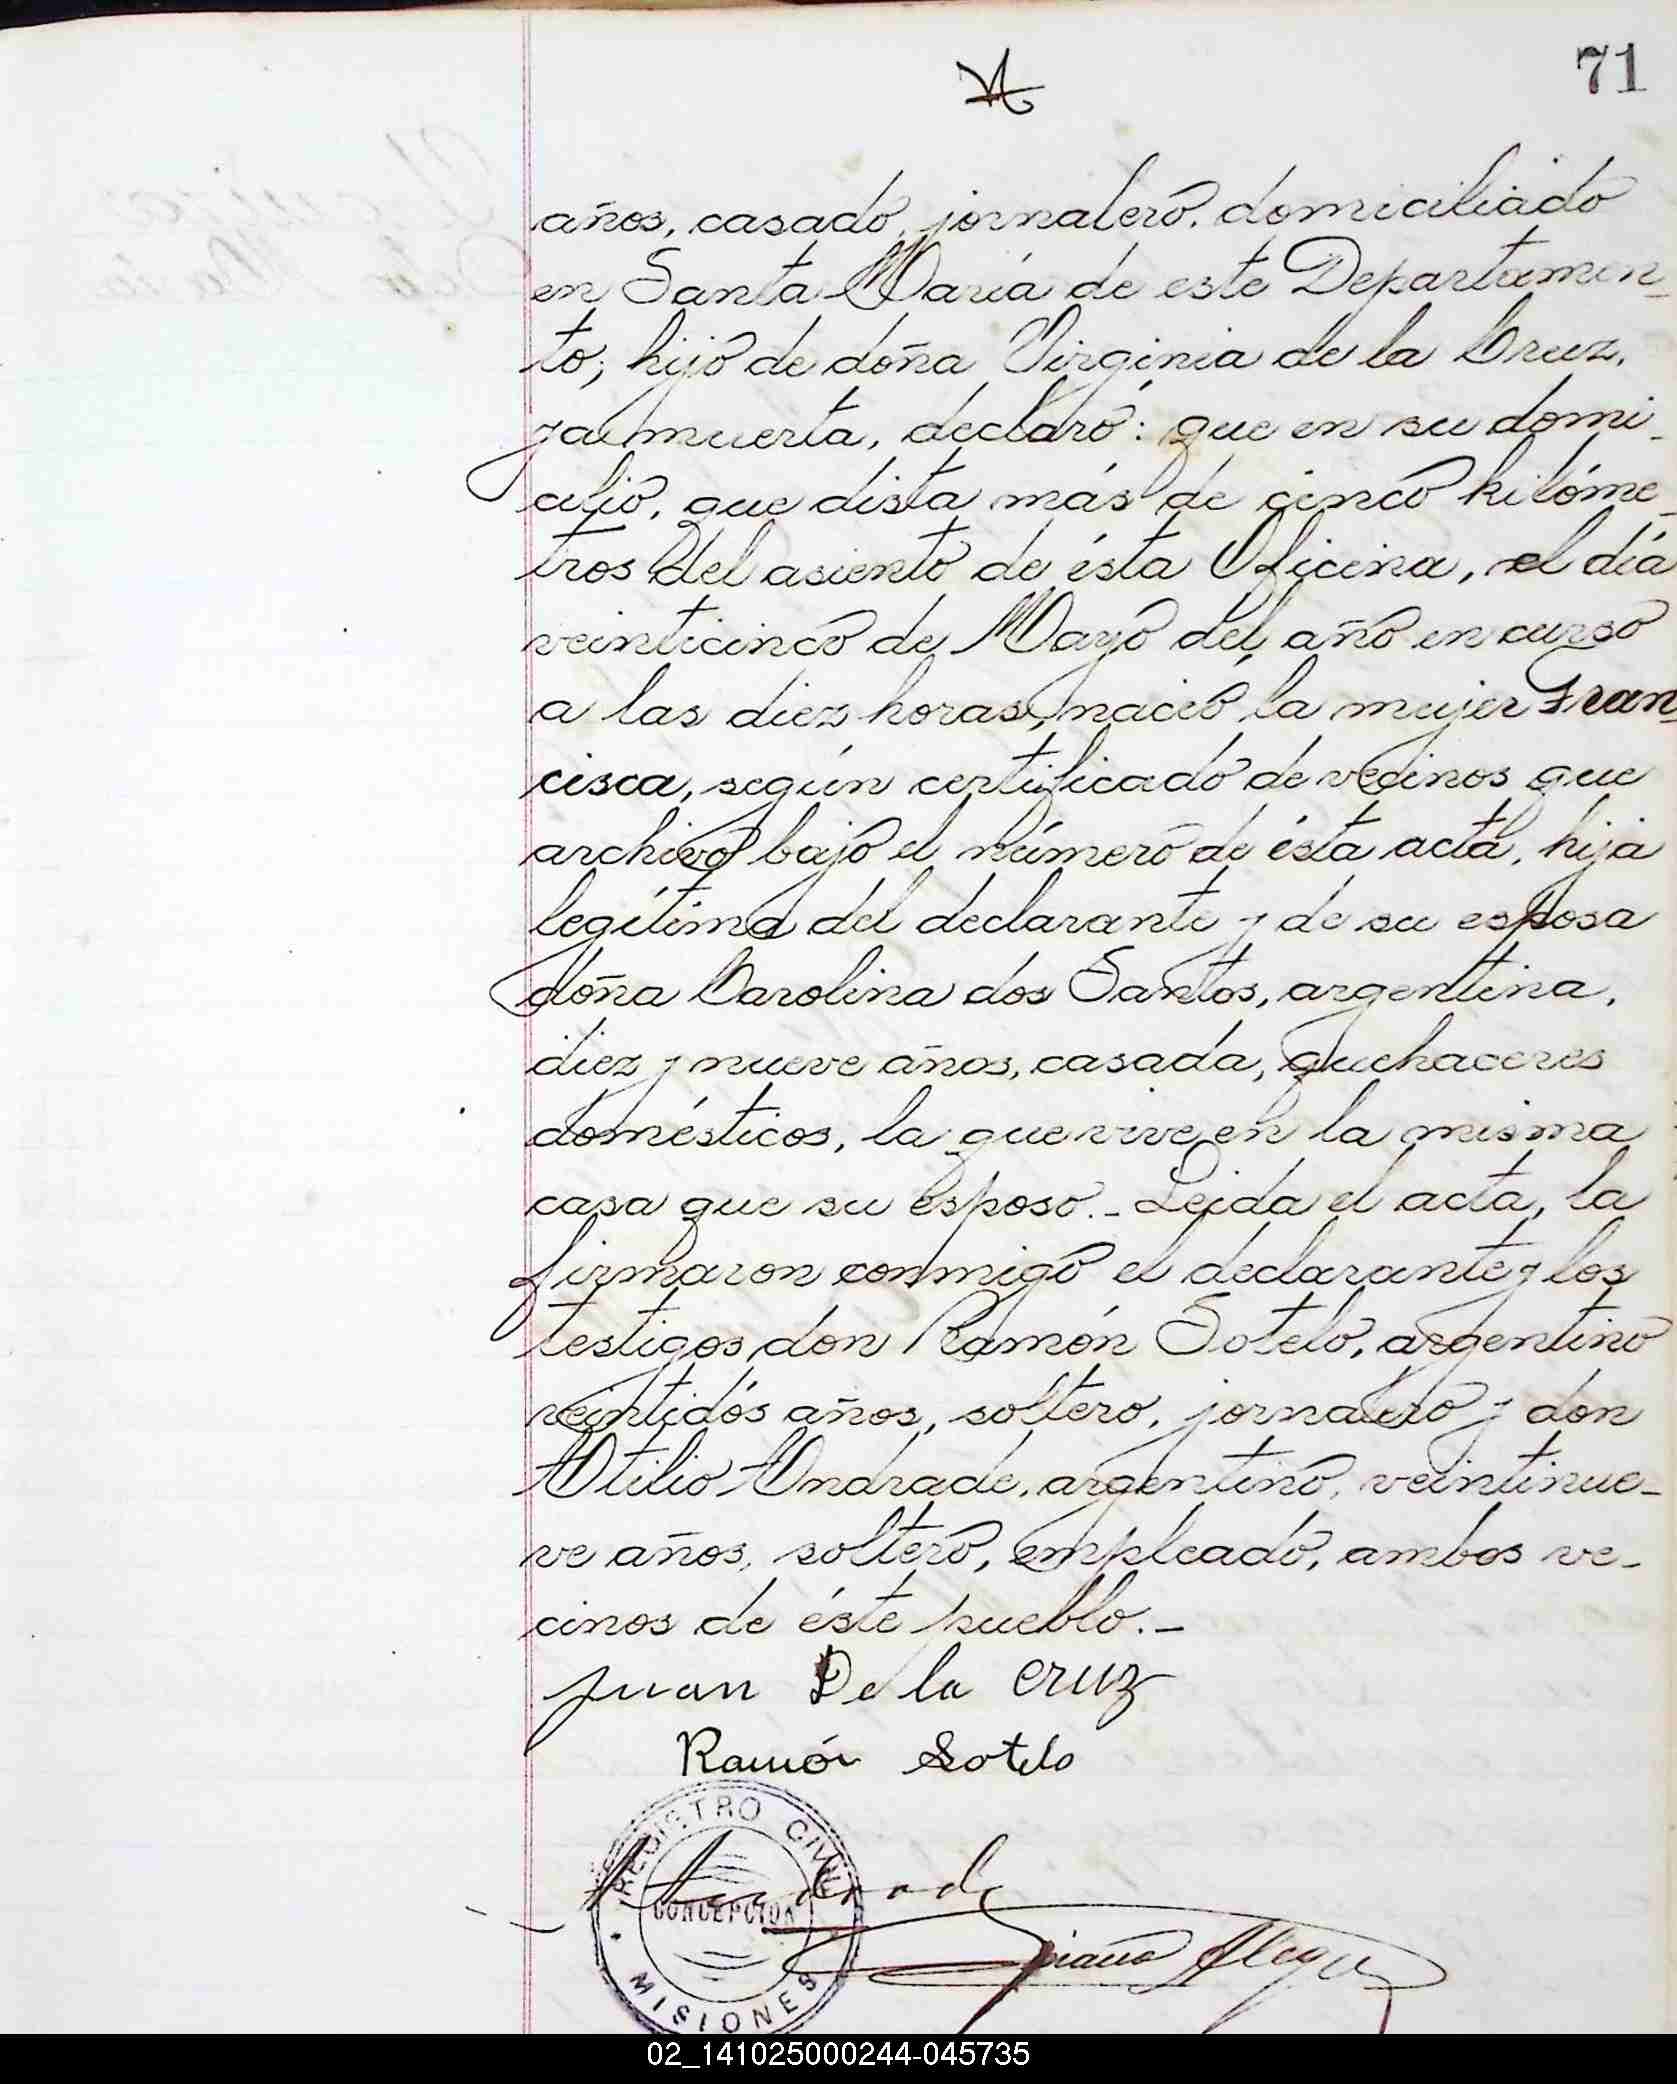 71
años, casado, jornalero, domiciliado
en Santa María de este Departamen-
to; hijo de doña Virginia de la Cruz,
ya muerta, declaró: que en su domi-
cilio, que dista más de cinco kilóme-
tros del asiento de ésta Oficina, el día
veinticinco de Mayo del año en curso
a las diez horas, nació la mujer Fran-
cisca, según certificado de vecinos que
archivo bajo el número de ésta acta, hija
legítima del declarante y de su esposa
doña Carolina dos Santos, argentina,
diez y nueve años, casada, quehaceres
domésticos, la que vive en la misma
casa que su esposo.- Leida el acta, la
firmaron conmigo el declarante y los
testigos don Ramón Sotelo, argentino
veintidós años, soltero, jornalero y don
Otilio Andrade, argentino, veintinue-
ve años, soltero, empleado, ambos ve-
cinos de éste pueblo.-
Juan De la Cruz
Ramón Sotelo
REGISTRO CIVIL
Andrade
CONCEPCION
MISIONES
02_141025000244-045735